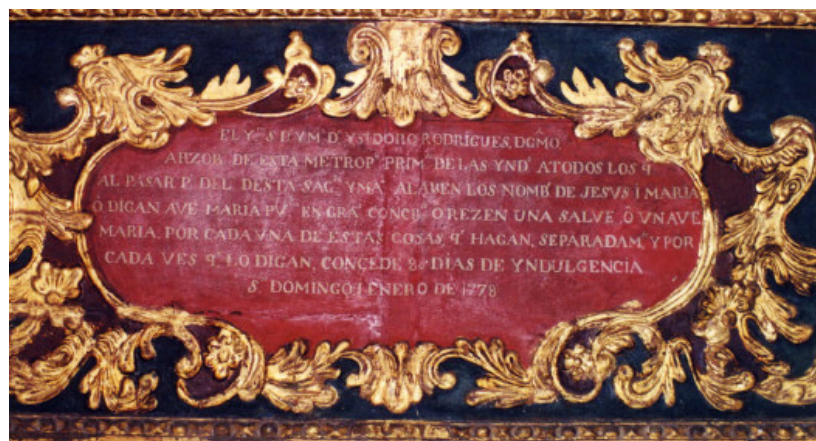 EL Y S D YM D YSIDORO RODRIGUES, DGMO.
ARZOB DE ESTA METROP PRIM DE LAS YND ATODOS LOS q
AL PASAR P DEL DESTA SAG YMA ALABEN LOS NOMB DE JESVS I MARIA
O DIGAN AVE MARIA PU EN GRA CONCB O REZEN UNA SALVE, O VNAVE
MARIA. POR CADA VNA DE ESTAS COSAS, q HAGAN, SEPARADAM Y POR
CADA VES q LO DIGAN, CONÇEDE 80 DIAS DE YNDULGENCIA
S. DOMINGO I ENERO DE 1778